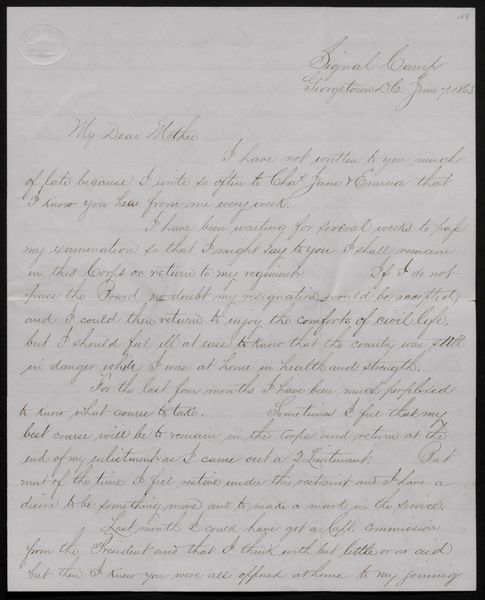 Signal Camp
Georgetown D.C. June 7, 1863
My Dear Mother
I have not written to you much
of late because I write so often to Chas, Jane & Emma that
I know you hear from me every week.
I have been waiting for several weeks to pass
my examination so that I might say to you I shall remain
in this Corps or return to my regiment. If I do not
pass the Board no doubt my resignation would be accepted
and I could then return to enjoy the comforts of civil life,
but I should feel ill at ease to know that the country was still
in danger while I was at home in health and strength.
For the last four months I have been much perplexed
to know what course to take. Sometimes I feel that my
best course will be to remain in the corps and return at the
end of my enlistment as I came out a 2 Lieutenant. But
most of the time I feel restive under the restraint and I have a
desire to be something more and to make a mark in the service.
Last month I could have got a Capt. commission
from the President and that I think with but little or no aid
but then I knew you were all opposed at home to my joining